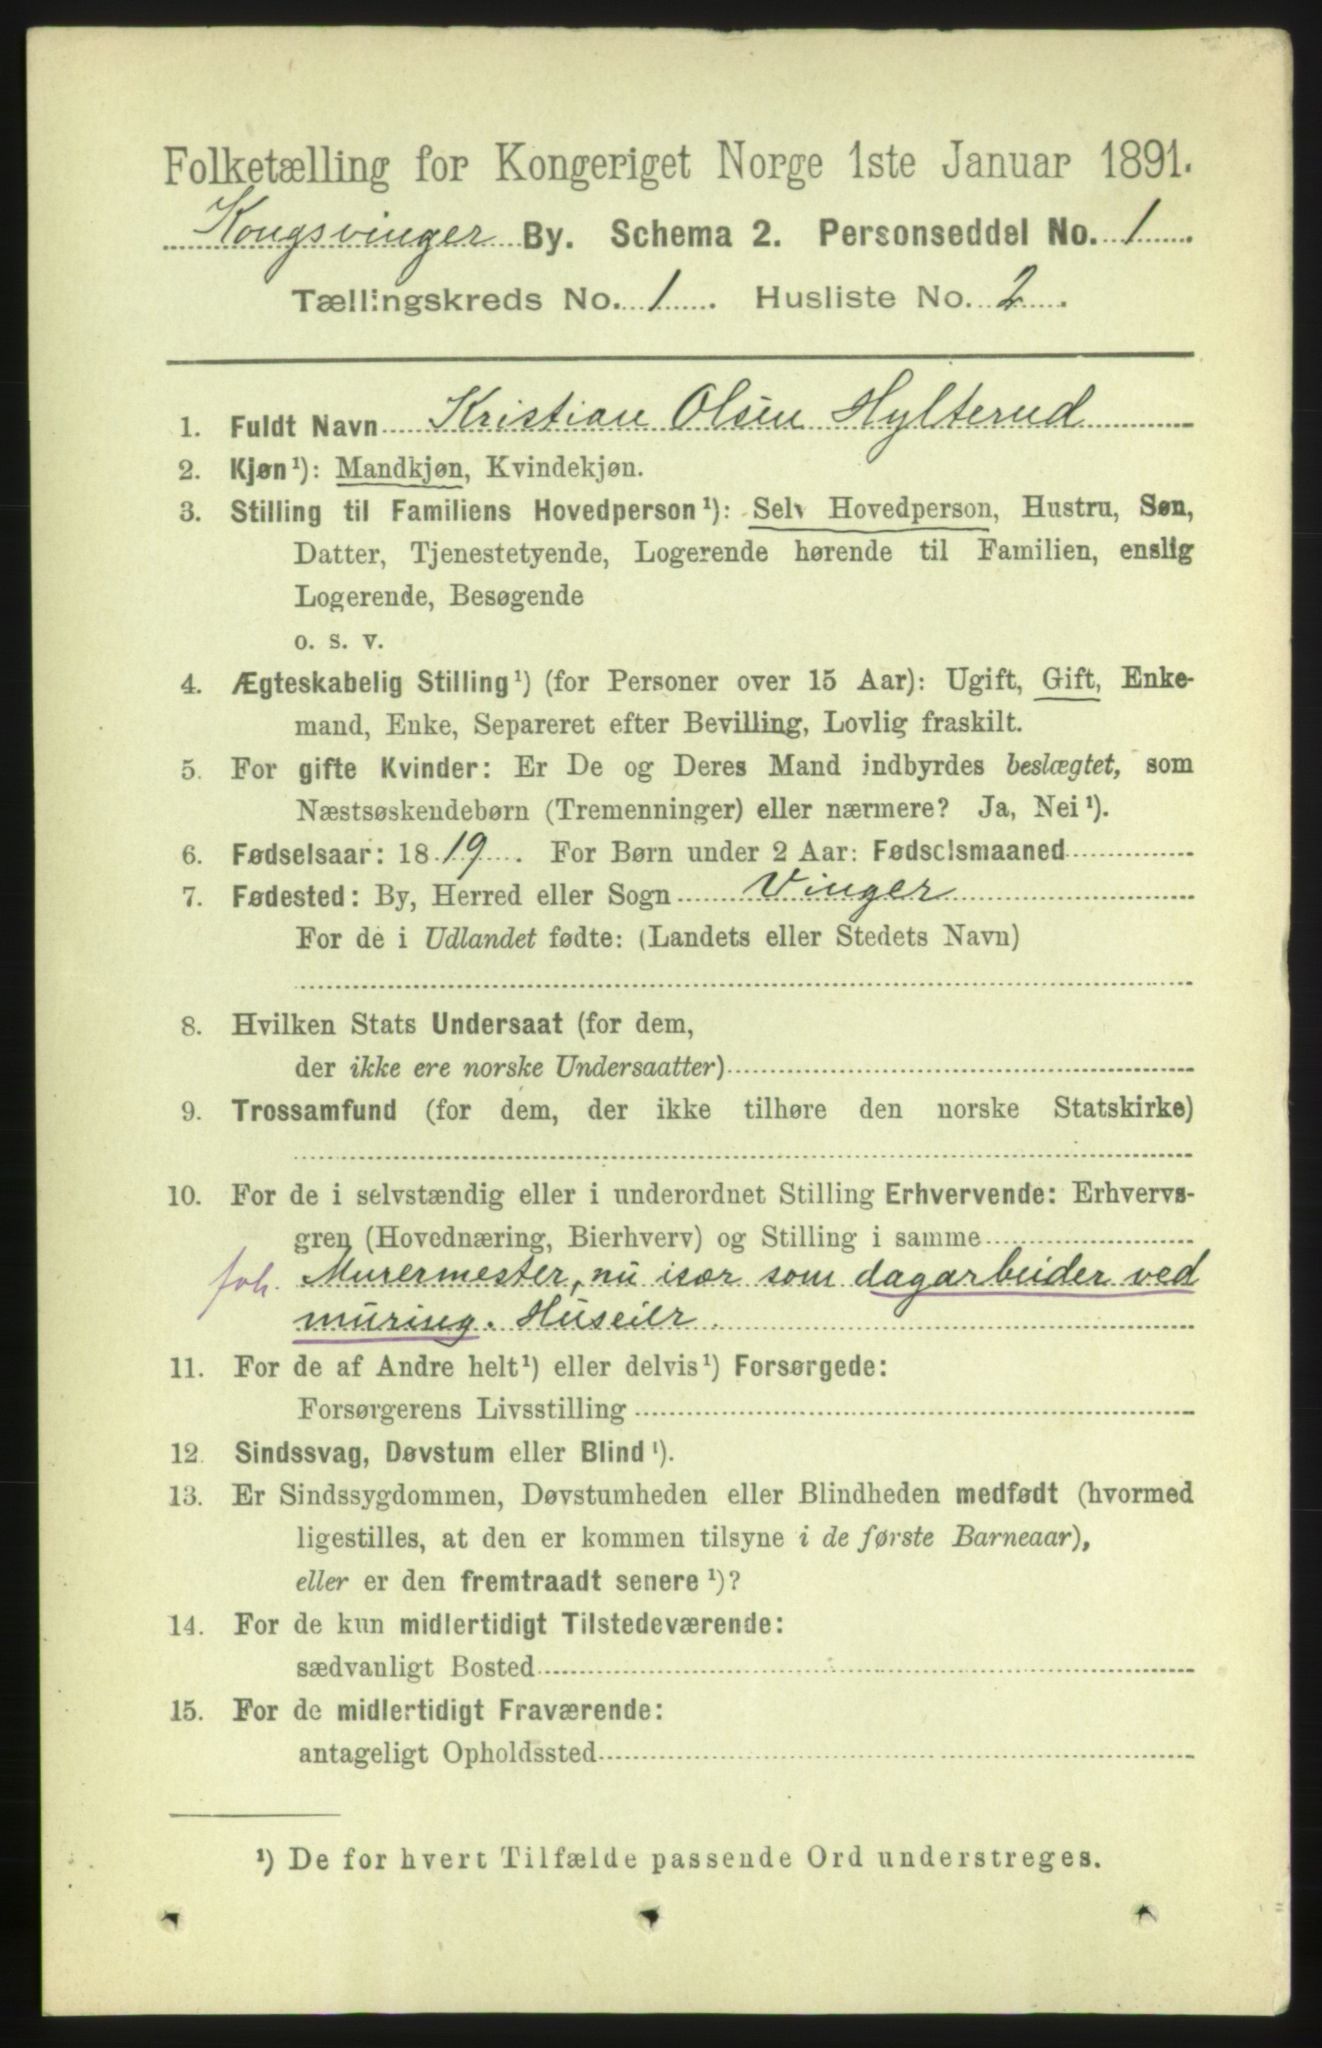 Folketælling for Kongeriget Norge 1ste Januar 1891.
Kongsvinger By. Schema 2. Personseddel No. 1.
Tællingskreds No. 1. Husliste No. 2.
1. Fuldt Navn Kristian Olsen Hylterud
2. Kjøn¹): Mandkjøn, Kvindekjøn.
3. Stilling til Familiens Hovedperson¹): Selv Hovedperson, Hustru, Søn,
Datter, Tjenestetyende, Logerende hørende til Familien, enslig
Logerende, Besøgende
o. s. v.
4. Ægteskabelig Stilling¹) (for Personer over 15 Aar): Ugift, Gift, Enke-
mand, Enke, Separeret efter Bevilling, Lovlig fraskilt.
5. For gifte Kvinder: Er De og Deres Mand indbyrdes beslægtet, som
Næstsøskendebørn (Tremenninger) eller nærmere? Ja, Nei¹).
6. Fødselsaar: 1819. For Børn under 2 Aar: Fødselsmaaned
7. Fødested: By, Herred eller Sogn Vinger
For de i Udlandet fødte: (Landets eller Stedets Navn)
8. Hvilken Stats Undersaat (for dem,
der ikke ere norske Undersaatter)
9. Trossamfund (for dem, der ikke tilhøre den norske Statskirke)
10. For de i selvstændig eller i underordnet Stilling Erhvervende: Erhvervs-
gren (Hovednæring, Bierhverv) og Stilling i samme
Murermester, nu især som dagarbeider ved
muring. Huseier.
11. For de af Andre helt¹) eller delvis¹) Forsørgede:
Forsørgerens Livsstilling
12. Sindssvag, Døvstum eller Blind¹).
13. Er Sindssygdommen, Døvstumheden eller Blindheden medfødt (hvormed
ligestilles, at den er kommen tilsyne i de første Barneaar),
eller er den fremtraadt senere¹)?
14. For de kun midlertidigt Tilstedeværende:
sædvanligt Bosted
15. For de midlertidigt Fraværende:
antageligt Opholdssted
¹) De for hvert Tilfælde passende Ord understreges.